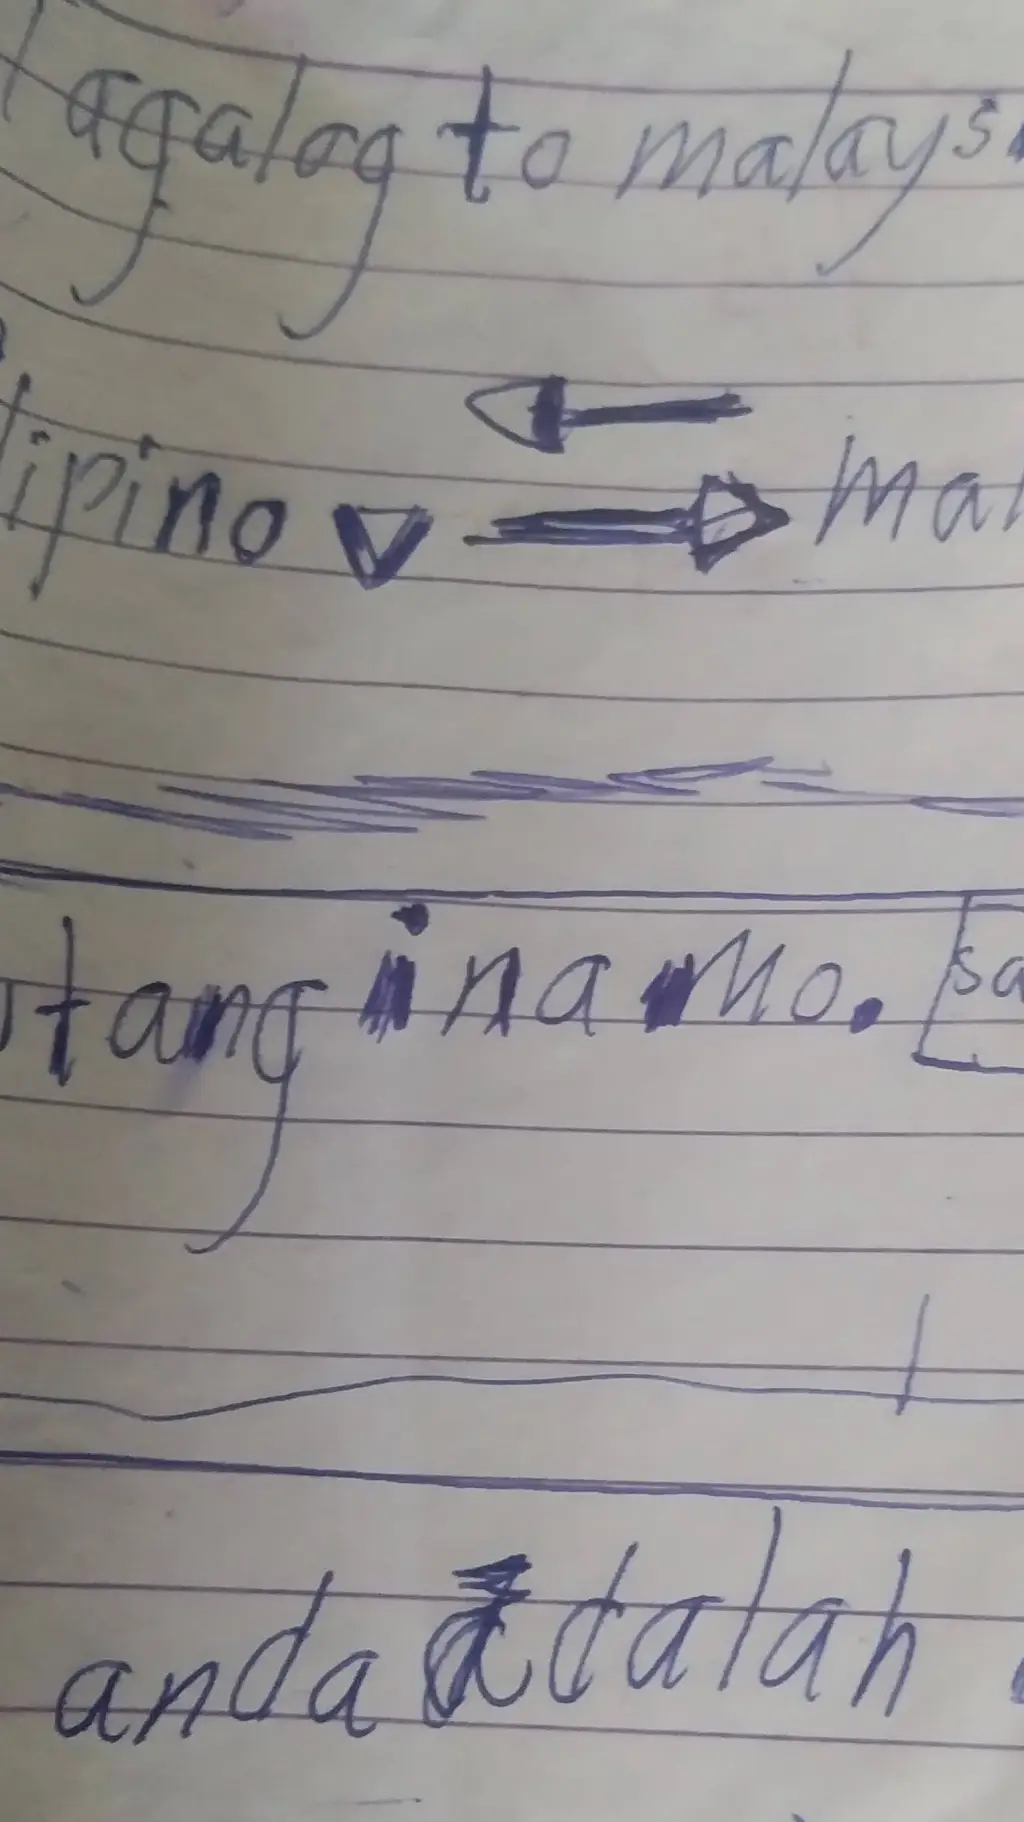 Tagalog to malays
lipino mal
tang ina mo. sa
anda adalah